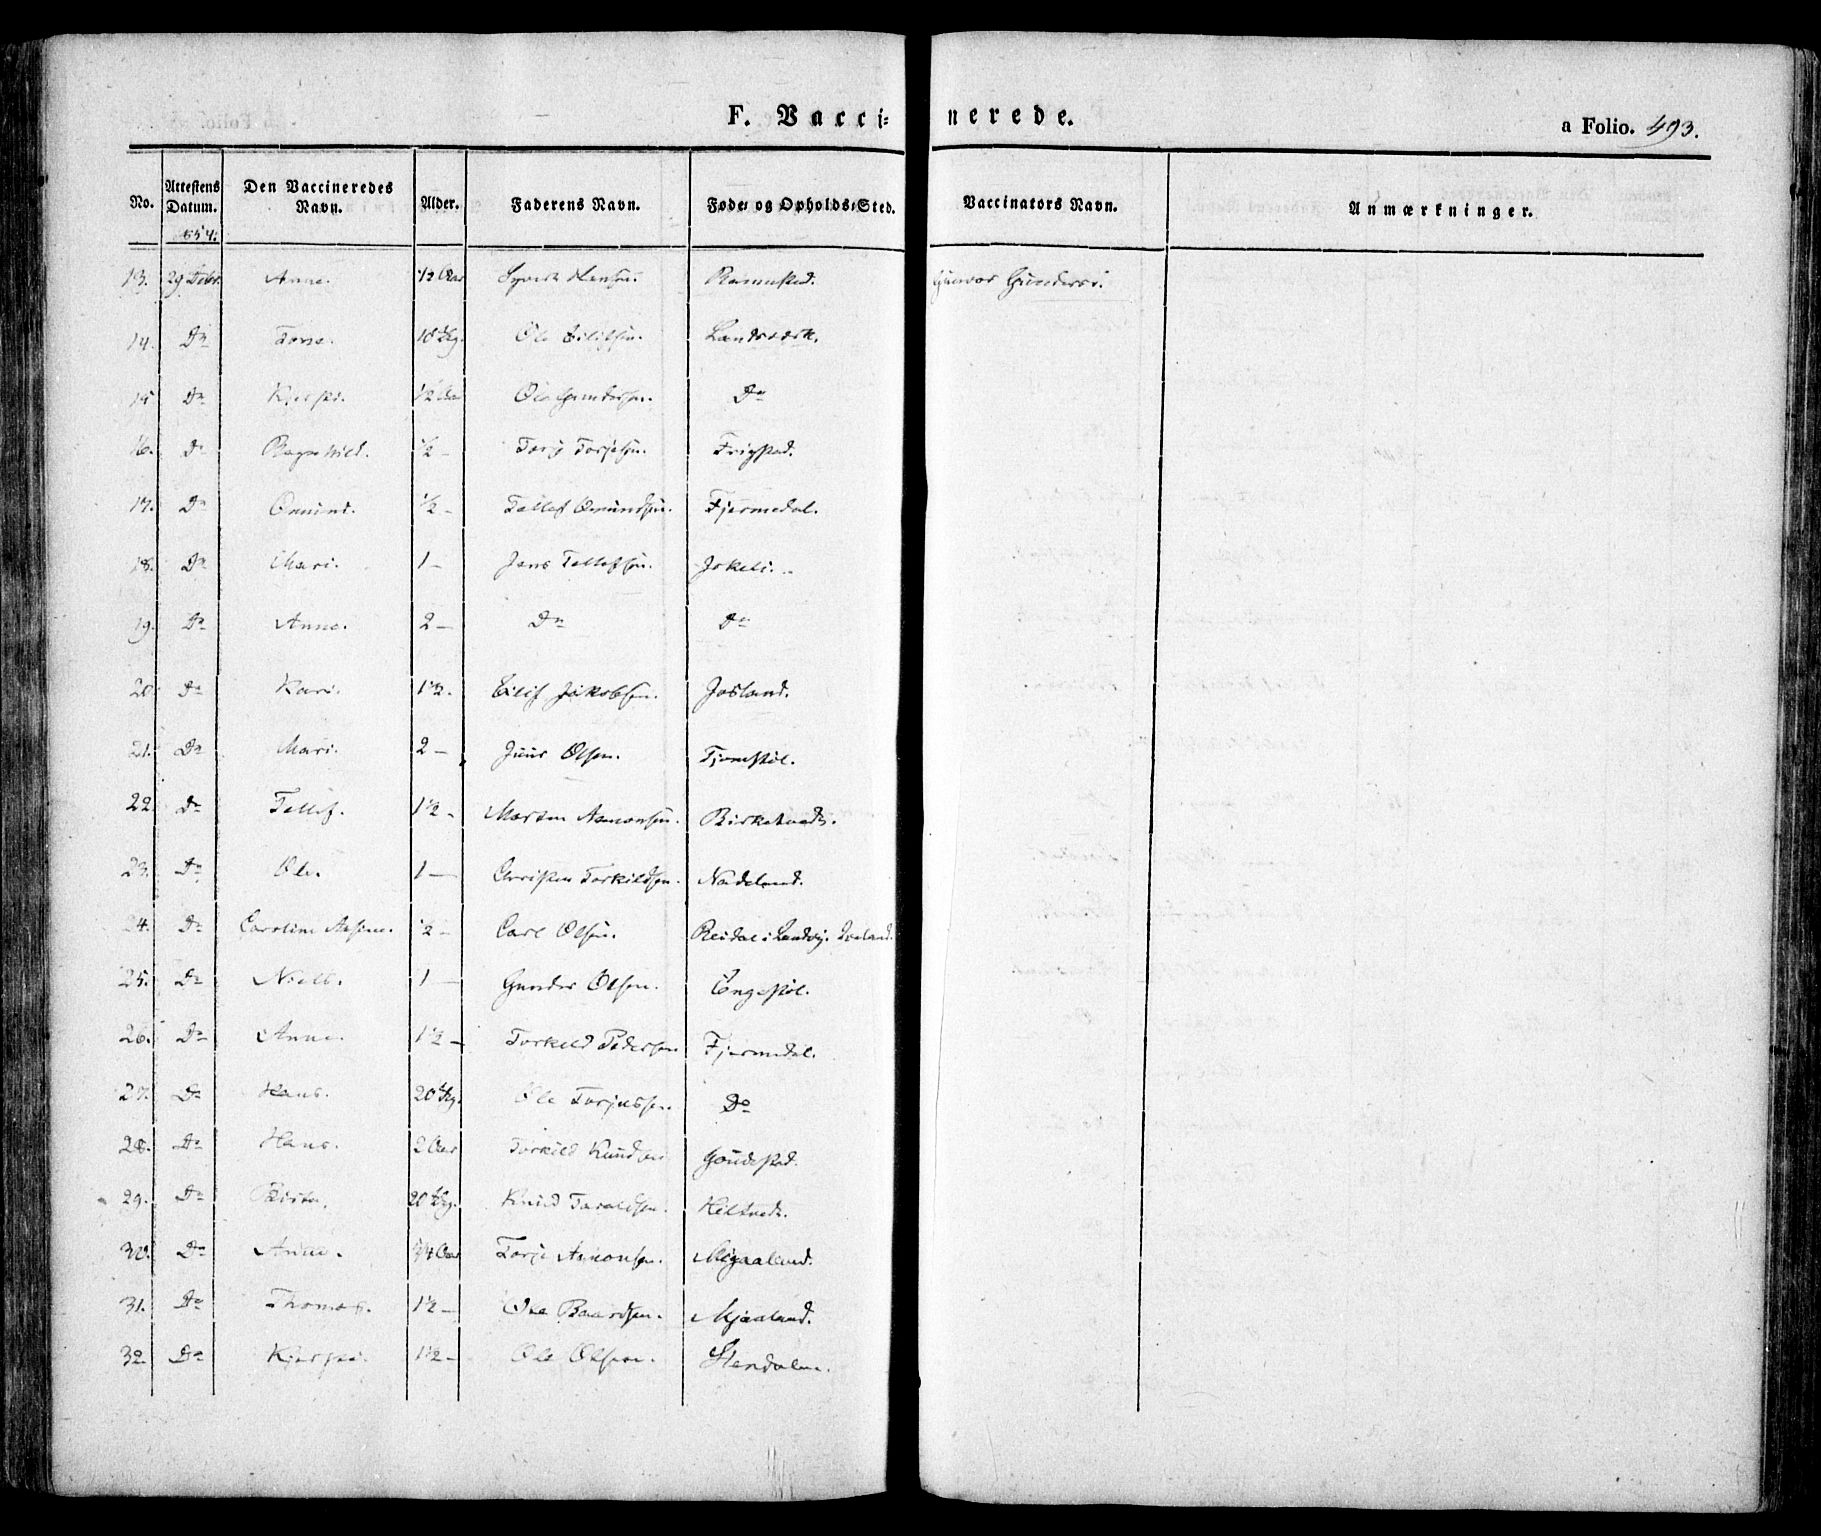 F. Vaccinerede. a Folio. 493.
No. Attestens Datum. Den Vaccineredes Navn. Alder. Faderens Navn. Føde- og Opholds-Sted. Vaccinators Navn. Anmærkninger.
854.
13. 29 Decbr. Anne. 1/2 Aar Hansen. Gunders.
14. Do Tone. 18 Ug. Ole Eilifsen. Landsverk.
15 Do Kjersti. 1/2 Aar Ole Gundersen. Do
16. Do Ragnhild. 1/2 - Torje Torjesen. Frigstad.
17. Do Omund. 1/2 - Tellef Omundsen. Fjermedal.
18. Do Mari. 1 - Jens Tellefsen. Jokeli.
19. Do Anne. 2 - Do Do
20. Do Kari. 1 1/2. Eilif Jakobsen. Josland.
21. Do Mari. 2 - Juur Olsen. Tjomstøl.
22 Do Tellef. 1 1/2 - Morten Aamonsen. Birketvedt.
23. Do Ole. 1 - Christen Torkildsen. Nadeland.
24. Do Caroline 1/2 - Carl Olsen. Reidal i Landvig. Iveland.
25. Do Niels. 1 - Gunder Olsen. Engestøl.
26. Do Anne. 1 1/2 - Torkild Pedersen Fjermedal.
27. Do Hans. 20 Ug. Ole Torjussen. Do
28. Do Hans. 2 Aar Torkild Knudsen
29. Do Birte. 20 Ug. Knud Taraldsen. Hiltvedt.
30. Do Anne. 3/4 Aar Torje Aamonsen. Migaaland.
31. Do Thomas. 1 1/2 - Ole Baardsen. Mjaaland.
32. Do Kjersti. 1 1/2 - Ole Olsen. Stendalen.